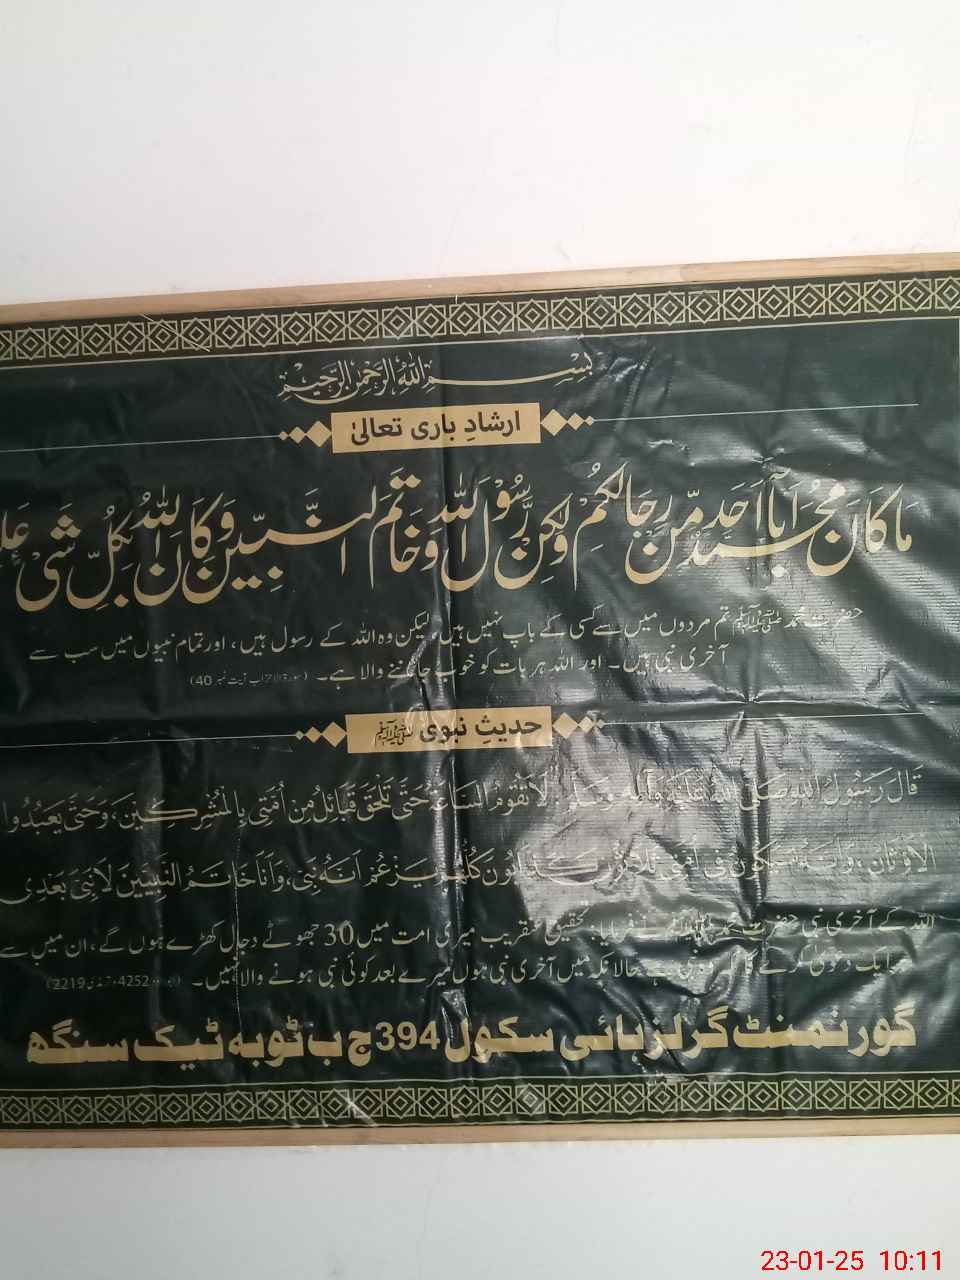 بِسْمِ اللهِ الرَّحْمٰنِ الرَّحِيْمِ
ارشادِ باری تعالیٰ
مَا كَانَ مُحَمَّدٌ اَبَا اَحَدٍ مِّنْ رِّجَالِكُمْ وَلٰكِنْ رَّسُوْلَ اللهِ وَخَاتَمَ النَّبِيّٖنَ وَكَانَ اللهُ بِكُلِّ شَیْءٍ
حضرت محمد ﷺ تم مردوں میں سے کسی کے باپ نہیں ہیں، لیکن وہ اللہ کے رسول ہیں، اور تمام نبیوں میں سب سے
آخری نبی ہیں۔ اور اللہ ہر بات کو خوب جاننے والا ہے۔ (سورۃ الاحزاب آیت نمبر 40)
حدیثِ نبوی ﷺ
قَالَ رَسُوْلُ اللهِ صَلَّى اللهُ عَلَيْهِ وَآلِهٖ وَسَلَّمَ: لَا تَقُوْمُ السَّاعَةُ حَتّٰى تَلْحَقَ قَبَائِلُ مِنْ اُمَّتِىْ بِالْمُشْرِكِيْنَ، وَحَتّٰى يَعْبُدُوا
الْاَوْثَانَ، وَاِنَّهُ سَيَكُوْنُ فِى اُمَّتِىْ ثَلَاثُوْنَ كَذَّابُوْنَ كُلُّهُمْ يَزْعُمُ اَنَّهُ نَبِىٌّ، وَاَنَا خَاتَمُ النَّبِيِّيْنَ لَا نَبِىَّ بَعْدِىْ
اللہ کے آخری نبی حضرت محمد ﷺ نے فرمایا: تحقیق عنقریب میری امت میں 30 جھوٹے دجال کھڑے ہوں گے، ان میں سے
ہر ایک دعویٰ کرے گا کہ وہ نبی ہے حالانکہ میں آخری نبی ہوں میرے بعد کوئی نبی ہونے والا نہیں۔ (4252، 2219)
گورنمنٹ گرلز ہائی سکول 394 ج ب ٹوبہ ٹیک سنگھ
23-01-25 10:11